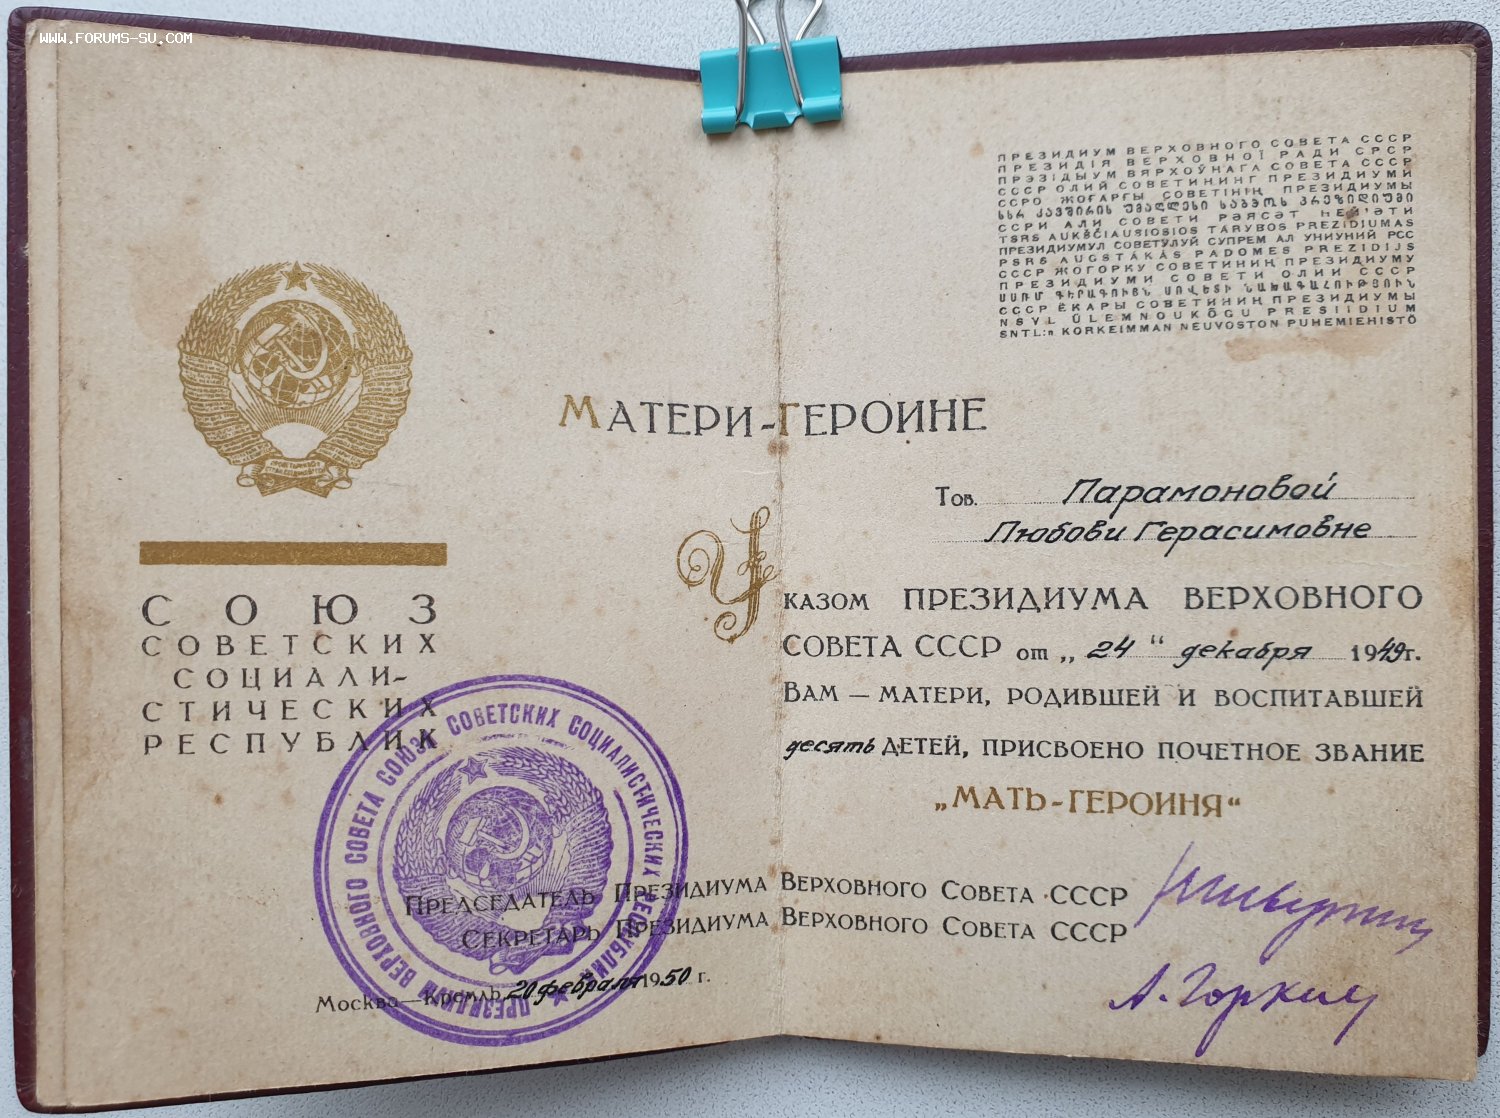 www.forums-su.com
ПРЕЗИДИУМ ВЕРХОВНОГО СОВЕТА СССР
ПРЕЗИДІЯ ВЕРХОВНОЇ РАДИ СРСР
ПРЭЗІДЫУМ ВЯРХОЎНАГА СОВЕТА СССР
СССР ОЛИЙ СОВЕТИНИНГ ПРЕЗИДИУМИ
ССРО ЖОҒАРҒЫ СОВЕТІНІҢ ПРЕЗИДИУМЫ
სსრ კავშირის უმაღლესი საბჭოს პრეზიდიუმი
ССРИ АЛИ СОВЕТИ РӘЯСӘТ ҺЕЙ'ӘТИ
TSRS AUKŠČIAUSIOSIOS TARYBOS PREZIDIUMAS
ПРЕЗИДИУМУЛ СОВЕТУЛУЙ СУПРЕМ АЛ УНИУНИЙ РСС
PSRS AUGSTĀKĀS PADOMES PREZIDIJS
СССР ЖОГОРКУ СОВЕТИНИН ПРЕЗИДИУМУ
ПРЕЗИДИУМИ СОВЕТИ ОЛИИ СССР
ՍՍՌՄ ԳԵՐԱԳՈՒՅՆ ՍՈՎԵՏԻ ՆԱԽԱԳԱՀՈՒԹՅՈՒՆ
СССР ЁКАРЫ СОВЕТИНИҢ ПРЕЗИДИУМЫ
NSVL ÜLEMNÕUKOGU PRESIIDIUM
SNTL:n KORKEIMMAN NEUVOSTON PUHEMIEHISTÖ
МАТЕРИ-ГЕРОИНЕ
Тов. Парамоновой
Любови Герасимовне
СОЮЗ
СОВЕТСКИХ
СОЦИАЛИ-
СТИЧЕСКИХ
РЕСПУБЛИК
УКАЗОМ ПРЕЗИДИУМА ВЕРХОВНОГО
СОВЕТА СССР от „24“ декабря 1949г.
ВАМ — МАТЕРИ, РОДИВШЕЙ И ВОСПИТАВШЕЙ
десять ДЕТЕЙ, ПРИСВОЕНО ПОЧЕТНОЕ ЗВАНИЕ
„МАТЬ-ГЕРОИНЯ“
ПРЕДСЕДАТЕЛЬ ПРЕЗИДИУМА ВЕРХОВНОГО СОВЕТА СССР
СЕКРЕТАРЬ ПРЕЗИДИУМА ВЕРХОВНОГО СОВЕТА СССР
А. Горкин
Москва—Кремль, 20 февраля 1950 г.
ПРЕЗИДИУМ ВЕРХОВНОГО СОВЕТА СОЮЗА СОВЕТСКИХ СОЦИАЛИСТИЧЕСКИХ РЕСПУБЛИК